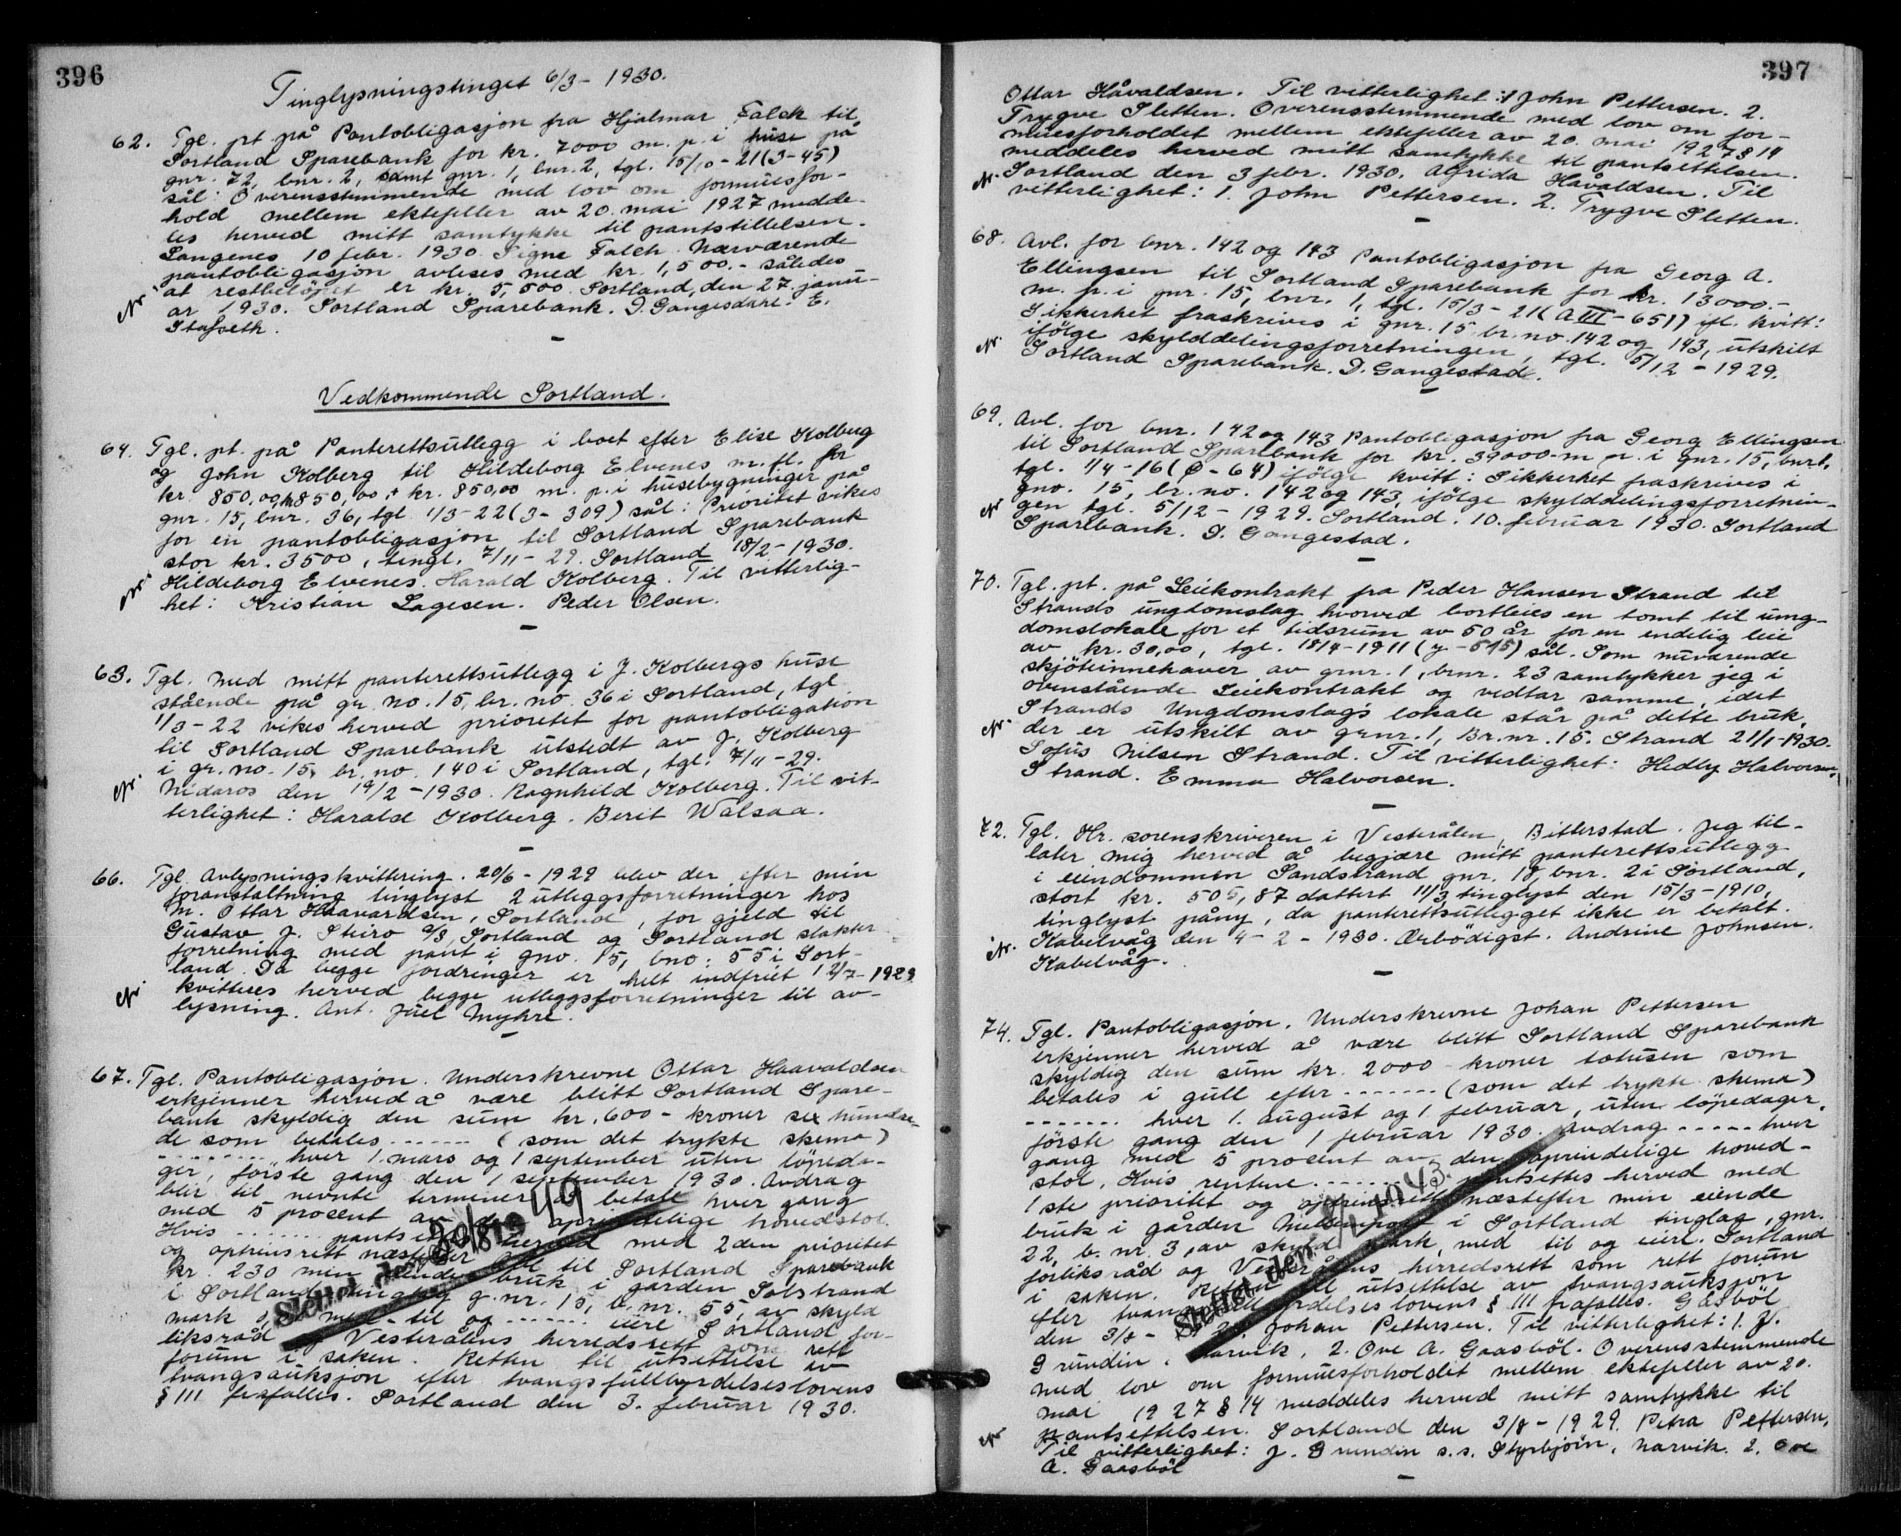 396
Tinglysningstinget 6/3 - 1930.
62. Tgl. pt på Pantobligasjon fra Hjalmar Falck til
Sortland Sparebank for kr. 7000 m. p. i huse på
gnr. 72, bnr. 2, samt gnr. 1, bnr. 2, tgl. 15/10 - 21 (3-45)
sål: Overensstemmende med lov om formuesfor-
hold mellem ektefeller av 20. mai 1927 medde-
les herved mitt samtykke til pantstillelsen.
Langenes 10 febr. 1930 Signe Falch. Nærværende
pantobligasjon avleses med kr. 1,500.- således
at restbeløpet er kr. 5,500 Sortland, den 27. janu-
ar 1930. Sortland Sparebank. D. Gangesdahl. E.
Stafseth.
Vedkommende Sortland.
64. Tgl. pt. på Panterettsutlegg i boet efter Elise Kolberg
og John Kolberg til Hildeborg Elvenes m. fl. for
kr. 850,00, kr 850,00 + kr. 850,00 m. p. i husebygninger på
gnr. 15, bnr. 36, tgl 1/3-22 (3-309) sål: Prioritet vikes
for en pantobligasjon til Sortland Sparebank
stor kr. 3500, tingl. 7/11 - 29. Sortland 18/2-1930.
Hildeborg Elvenes. Harald Kolberg. Til vitterlig-
het: Kristian Lagesen. Peder Olsen.
63. Tgl. Med mitt panterettsutlegg i J. Kolbergs huse
stående på gr. no. 15, br. no. 36 i Sortland, tgl
1/3-22 vikes herved prioritet for pantobligation
til Sortland Sparebank utstedt av J. Kolberg
i gr. no. 15, br. no. 140 i Sortland, tgl. 7/11-29.
Nidaros den 14/2-1930. Ragnhild Kolberg. Til vit-
terlighet: Harald Kolberg. Berit Walsaa.
66. Tgl. Avlysningskvittering. 20/6-1929 blev der efter min
foranstaltning tinglyst 2 utleggsforretninger hos
M. Ottar Haavardsen, Sortland, for gjeld til
Gustav J. Steiro a/s, Sortland og Sortland slakter-
forretning med pant i gno. 15, bno. 55 i Sort-
land. Da begge fordringer er helt indfriet 12/7-1929
kvitteres herved begge utleggsforretninger til av-
lysning. Ant. Juel Myhre.
67. Tgl. Pantobligasjon. Underskrevne Ottar Haavaldsen
erkjenner herved å være blitt Sortland Spare-
bank skyldig den sum kr. 600 - kroner sex hundre-
de som betales ....... (som det trykte skema)
........ hver 1. mars og 1 september uten løpeda-
ger, første gang den 1 september 1930. Avdrag
blir til nevnte terminer å betale hver gang
med 5 procent av den oprindelige hovedstol.
Hvis ....... pantsettes herved med 2den prioritet
og opreinsrett næstefter til Sortland Sparebank
kr. 230 min eiende bruk i gården Solstrand
i Sortland tinglag g.nr. 15, b.nr. 55, av skyld
mark med til og ....... eiere Sortland for-
liksråd og Vesterålens herredsrett som rett
forum i saken. Retten til utsettelse av
tvangsauksjon efter tvangsfullbyrdelseslovens
§ 111 frafalles. Sortland den 3. februar 1930.
Slettet den 30/8 1949
397
Ottar Håvaldsen. Til vitterlighet: 1 John Pettersen. 2.
Trygve Sletten. Overensstemmende med lov om for-
muesforholdet mellem ektefeller av 20. mai 1927 § 14
meddeles herved mitt samtykke til pantsettelsen.
Sortland den 3 febr. 1930. Alfrida Håvaldsen. Til
vitterlighet: 1. John Pettersen. 2. Trygve Sletten.
68. Avl. for bnr. 142 og 143 Pantobligasjon fra Georg A.
Ellingsen til Sortland Sparebank for kr. 13000.-
m. p. i gnr. 15, bnr. 1, tgl. 15/3-21 (A III - 651) ifl. kvitt:
Sikkerhet fraskrives i gnr. 15 br. no. 142 og 143, utskilt
ifølge skylddelingsforretningen, tgl. 5/12-1929.
Sortland Sparebank. D. Gangestad.
69. Avl. for bnr. 142 og 143 Pantobligasjon fra Georg Ellingsen
til Sortland Sparebank for kr. 39000 - m p. i gnr. 15, bnr 1,
tgl. 1/4-16 (Ø-64) ifølge kvitt: Sikkerhet fraskrives i
gno. 15, br. no. 142 og 143, ifølge skylddelingsforretnin-
gen tgl. 5/12-1929. Sortland. 10. februar 1930. Sortland
Sparebank. D. Gangestad.
70. Tgl. pt. på Leiekontrakt fra Peder Hansen Strand til
Strands ungdomslag hvorved bortleies en tomt til ung-
domslokale for et tidsrum av 50 år for en endelig leie
av kr. 30,00, tgl. 18/4-1911 (y-515) sål. Som nuværende
skjøteinnehaver av gnr. 1, bnr. 23 samtykker jeg i
ovenstående Leiekontrakt og vedtar samme, idet
Strands Ungdomslag's lokale står på dette bruk,
der er utskilt av gnr. 1, Br.nr. 15. Strand 21/1-1930.
Sofus Nilsen Strand. Til vitterlighet: Hedly Halvorsen,
Strand. Emma Halvorsen.
72. Tgl. Hr. sorenskriveren i Vesterålen, Bitterstad. Jeg til-
later mig herved å begjære mitt panterettsutlegg
i eiendommen Sandstrand gnr. 10, bnr. 2 i Sortland,
stort kr. 505,87 datert 11/3, tinglyst den 15/3-1910,
tinglyst påny, da panterettsutlegget ikke er betalt.
Kabelvåg den 4-2-1930. Ærbødigst. Andrine Johnsen.
Kabelvåg.
74. Tgl. Pantobligasjon. Underskrevne Johan Pettersen
erkjenner herved å være blitt Sortland Sparebank
skyldig den sum kr. 2000 - kroner totusen som
betales i gull efter ....... (som det trykte skema)
....... hver 1. august og 1. februar, uten løpedager,
første gang den 1 februar 1930. Avdrag ..... hver
gang med 5 procent av den oprindelige hoved-
stol, Hvis rentene ....... pantsettes herved med
1ste prioritet og opreinsrett næstefter min eiende
bruk i gården i Sortland tinglag, gnr.
22, b. nr. 3, av skyld mark, med til og eiere. Sortland
forliksråd og Vesterålens herredsrett som rett forum
i saken. Retten til utsettelse av tvangsauksjon
efter tvangsfullbyrdelseslovens § 111 frafalles. Gåsbøl
den 3/8 - 29. Johan Pettersen. Til vitterlighet: 1. J.
Grundin, Narvik, 2. Ove A. Gaasbøl. Overensstemmende
med lov om formuesforholdet mellem ektefeller av 20.
mai 1927 § 14 meddeles herved mitt samtykke til
pantsettelsen. Sortland den 3/8-1929. Petra Pettersen.
Til vitterlighet: J. Grundin s.s. Styrbjørn, Narvik. 2. Ove
A. Gaasbøl
Slettet den 1943